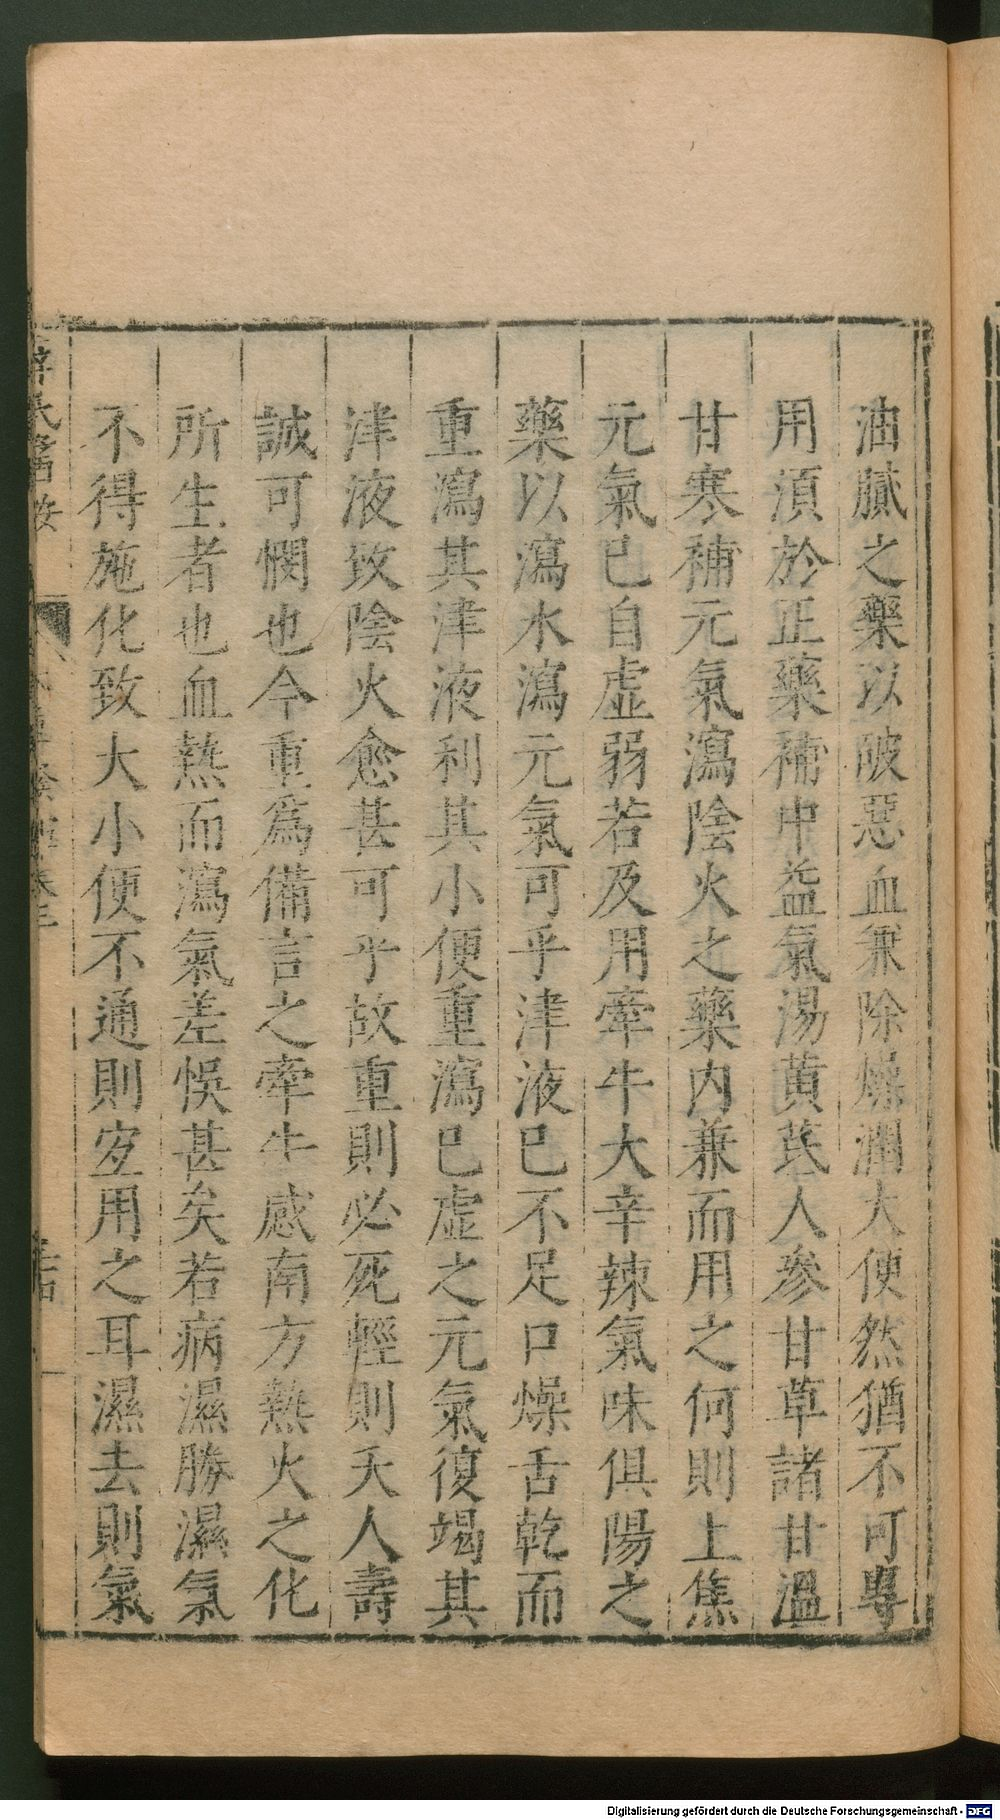 油膩之藥以破惡血兼除燥潤大便然猶不可專
用須於正藥補中益氣湯黃芪人參甘草諸甘溫
甘寒補元氣瀉陰火之藥內兼而用之何則上焦
元氣已自虛弱若及用牽牛大辛辣氣味俱陽之
藥以瀉水瀉元氣可乎津液已不足口燥舌乾而
重瀉其津液利其小便重瀉已虛之元氣復竭其
津液致陰火愈甚可乎故重則必死輕則夭人壽
誠可憫也今重爲備言之牽牛感南方熱火之化
所生者也血熱而瀉氣差悞甚矣若病濕勝濕氣
不得施化致大小便不通則宜用之耳濕去則氣
Digitalisierung gefördert durch die Deutsche Forschungsgemeinschaft - DFG